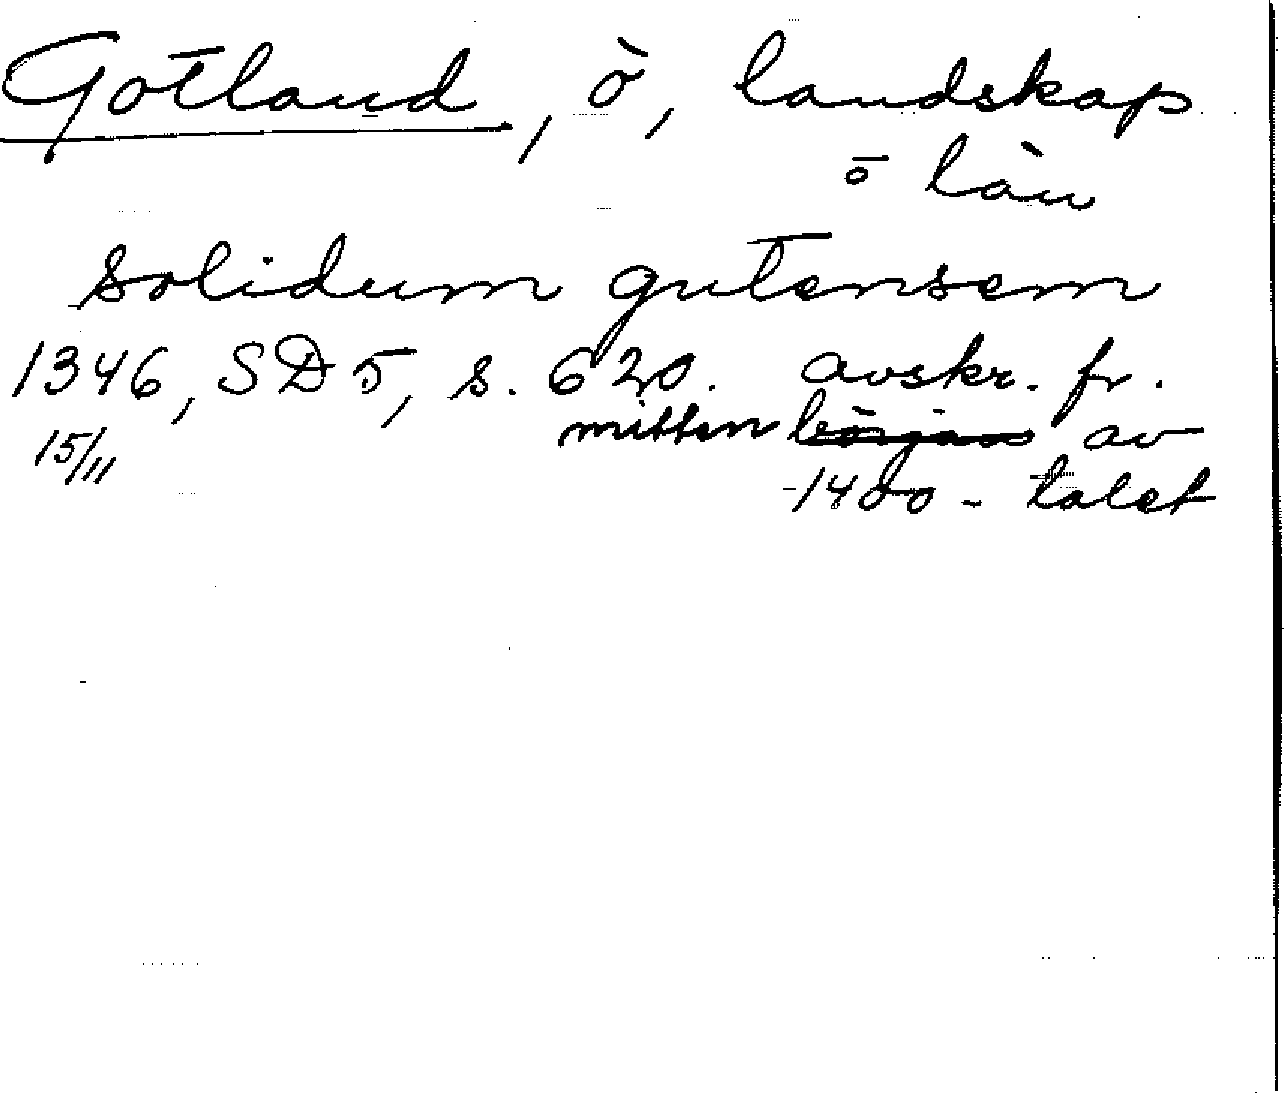 Gotland, ö, landskap
o län
solidum gutensem
1346, SD 5, s. 620. avskr. fr.
15/11 mitten början av
-1400-talet